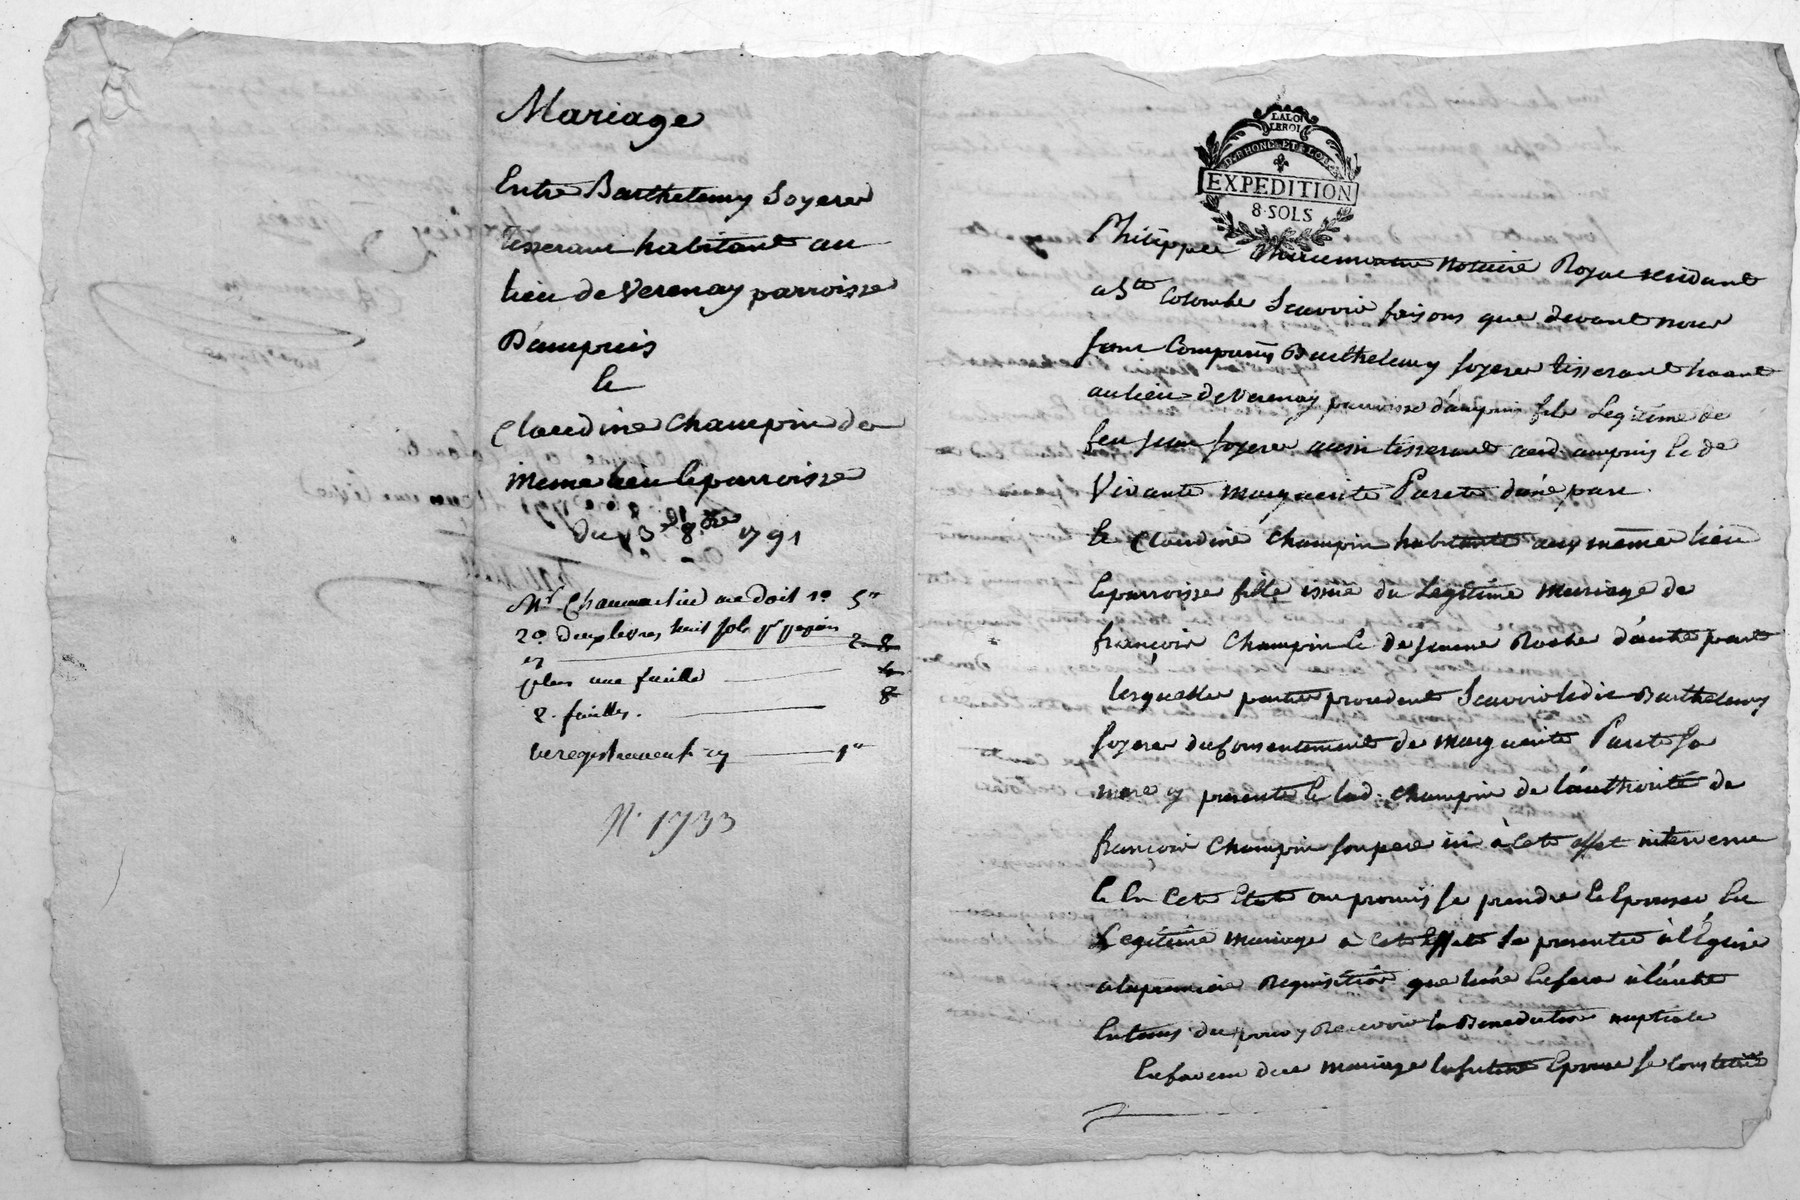 Mariage
Entre Barthelemy Soyere
tisserant habitant au
lieu de Verenay parroisse
D'ampuis
Et
Claudine Champin de
meme lieu et parroisse
Du 13 8bre 1791
Mr Chaumartin me doit 1º 5"
2º deux livres huit sols pr papier
2 8
plus une feuille
8. feuilles. 8
Enregistrement cy 1"
N. 1733
LALOI
LEROI
D. RHONE ET LOIRE
EXPEDITION
8 SOLS
Philippe notaire Royal residant
a Ste Colombe Scavoir faisons que devant nous
furent Comparûs Barthelemy Soyere tisserant haant
au lieu de Verenay parroisse d'ampuis fils Legitime de
feu Jean Soyere aussi tisserant aud. ampuis et de
Vivante Marguerite Paret d'une part
Et Claudine Champin habitante aux même lieu
et parroisse fille issuë du Legitime mariage de
françois Champin et de Jeanne Roche d'autre part
lesquelles parties procedent Scavoir ledit Barthelemy
Soyere du Consentement de Marguerite Paret Sa
mere cy presente et lad. Champin de l'authorité de
françois Champin son pere ici à cet effet intervenu
Et En cet Etat ont promis se prendre et Epouser En
Legitime mariage à cet Effet Se presenter à l'Eglise
à la premiere Requisition que l'une En fera à l'autre
Recevoir la Benediction nuptiale
En faveur du mariage la future Epouse se Constitue